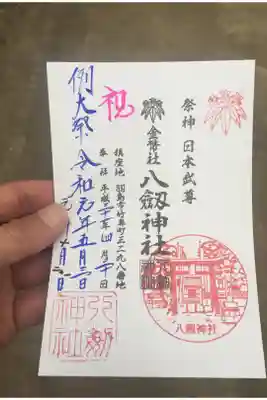 祭神 日本武尊
金幣社 八劔神社
鎮座地 羽島市竹鼻町三二九八番地
平成三十一年四月三十日
祝
例大祭 令和元年五月二日
八劔神社
八劔
神社